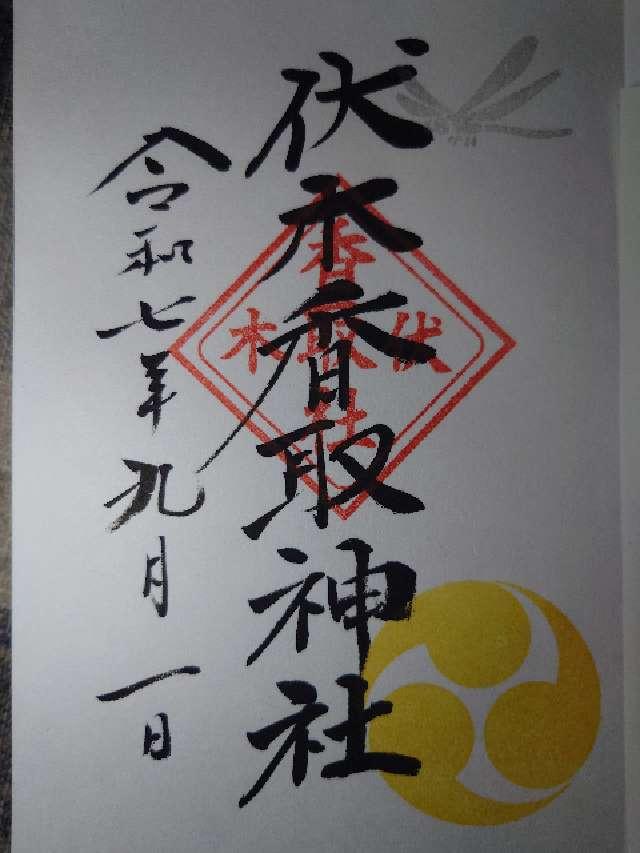 伏木香取神社
令和七年九月一日
香
伏取木
社